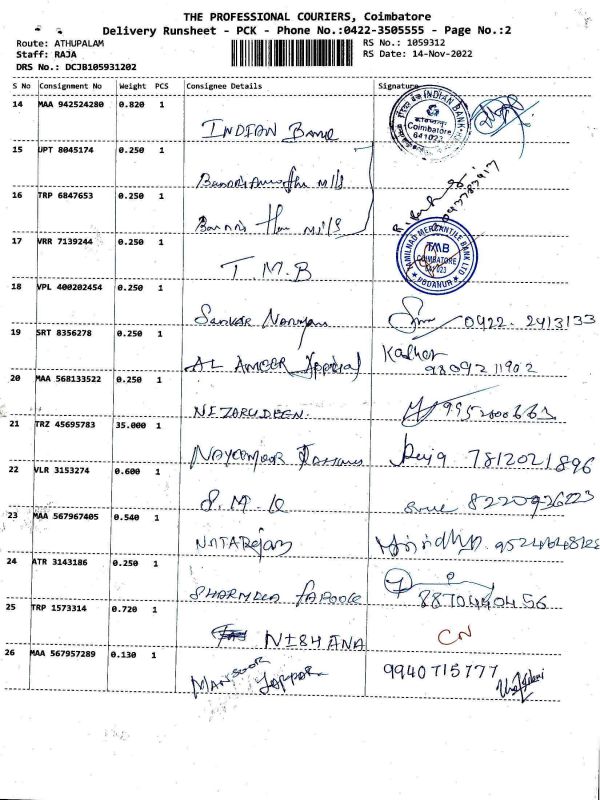 THE PROFESSIONAL COURIERS, Coimbatore
Delivery Runsheet - PCK - Phone No.:0422-3505555 - Page No.:2
Route: ATHUPALAM RS No.: 1059312
Staff: RAJA RS Date: 14-Nov-2022
DRS No.: DCJB105931202
S No Consignment No Weight PCS Consignee Details Signature
14 MAA 942524280 0.820 1 INDIAN Bank INDIAN BANK Coimbatore 641023
15 UPT 8045174 0.250 1 Mills
16 TRP 6847653 0.250 1 Mills
17 VRR 7139244 0.250 1 T.M.B TAMILNAD MERCANTILE BANK LTD TMB COIMBATORE 641 023 PODANUR
18 VPL 400202454 0.250 1 Sankar Narayan 0422-2413133
19 SRT 8356278 0.250 1 AL AMEER 9809211902
20 MAA 568133522 0.250 1 NIZARUDEEN.
21 TRZ 45695783 35.000 1 7812021896
22 VLR 3153274 0.600 1
23 MAA 567967405 0.540 1 NATARAJAN
24 ATR 3143186 0.250 1 SHARMILA
25 TRP 1573314 0.720 1 NISHANA CN
26 MAA 567957289 0.130 1 MANSOOR 9940715777